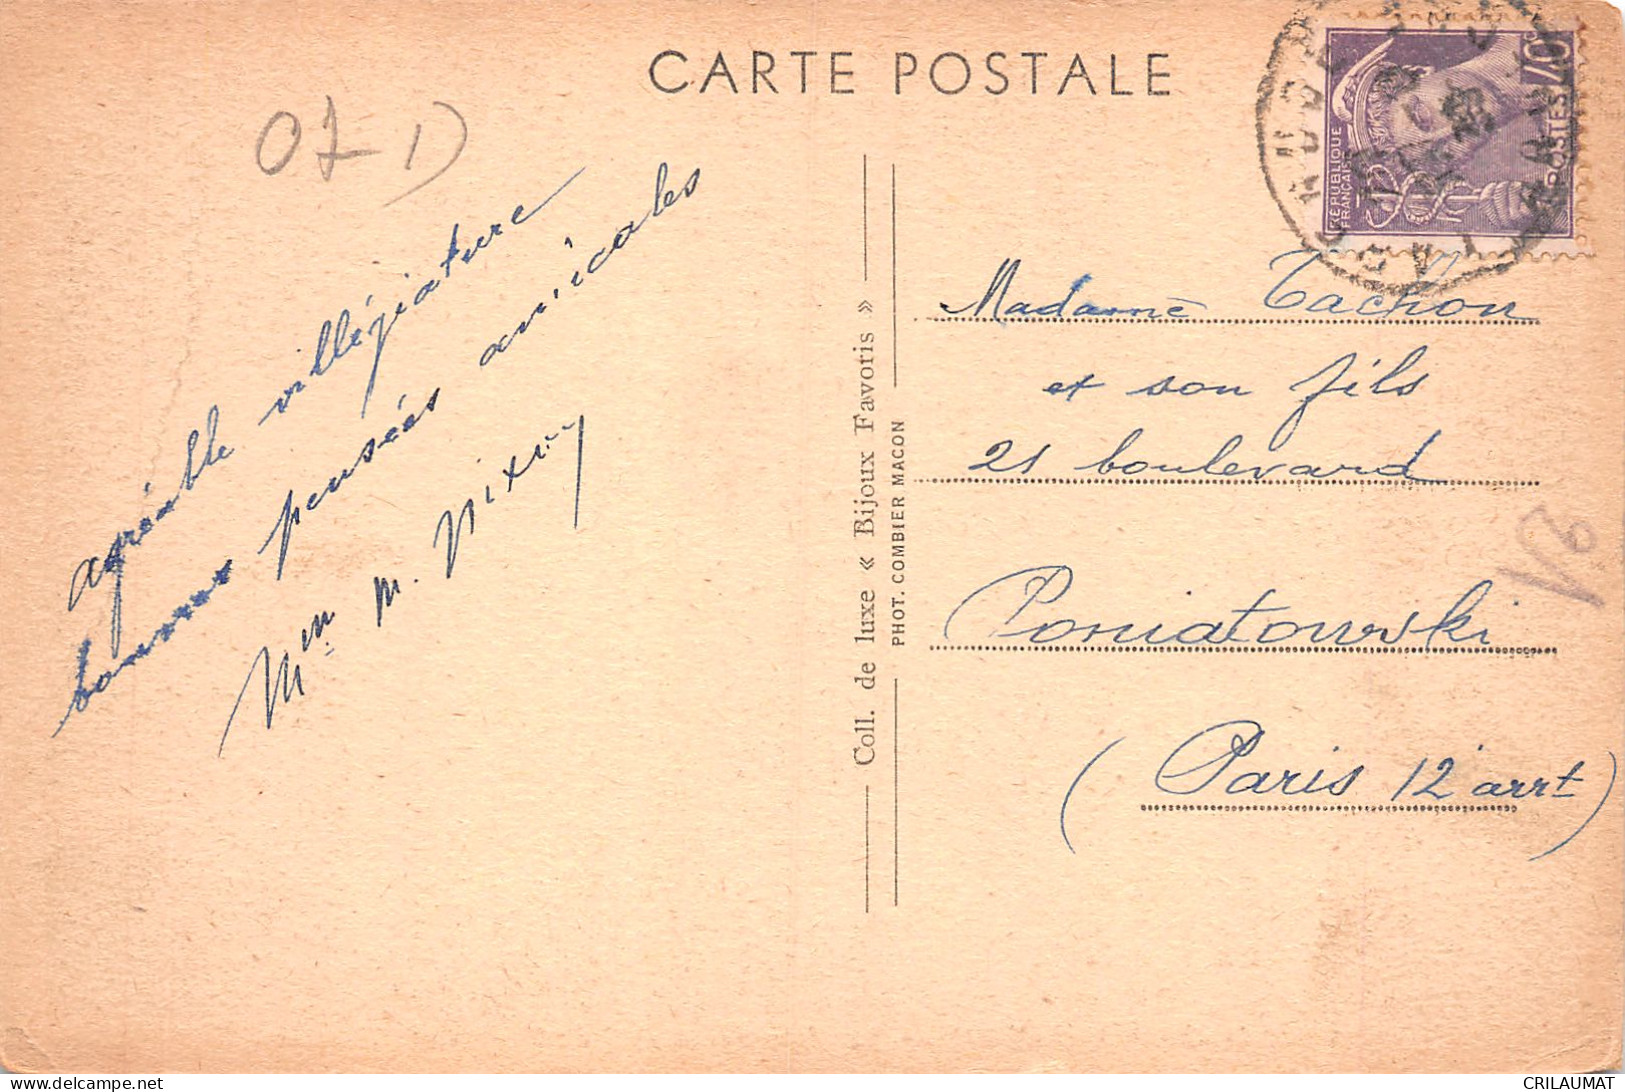 CARTE POSTALE
07 1)
agréable villégiature
bonnes pensées amicales
Mme M.
RÉPUBLIQUE
FRANÇAISE
POSTES 70
Coll. de luxe « Bijoux Favoris »
PHOT. COMBIER MACON
Madame Tachon
et son fils
21 boulevard
Poniatowski
(Paris 12 arrt)
V6
delcampe.net
CRILAUMAT